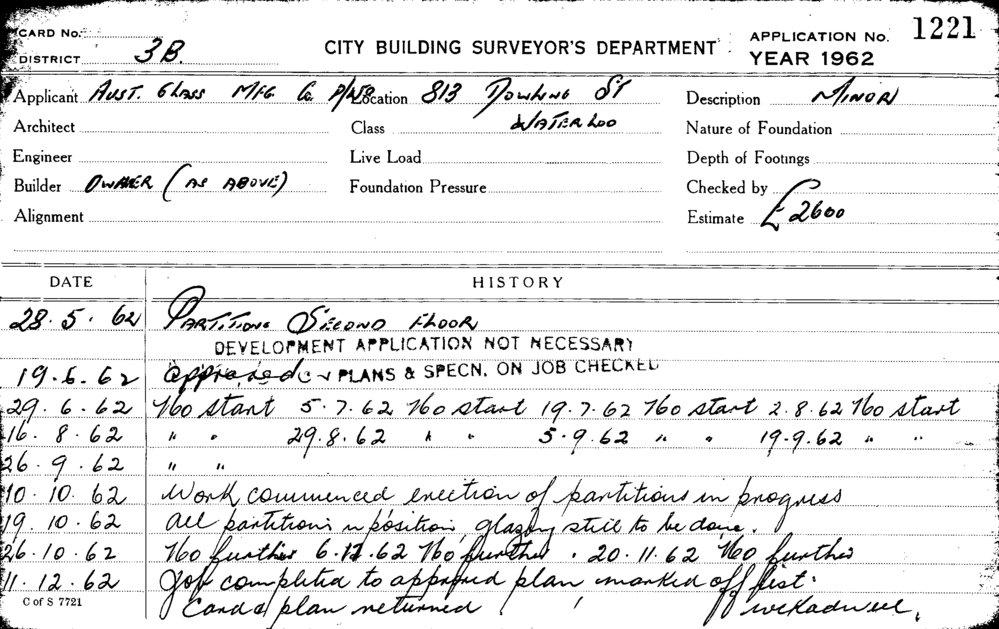 CARD No. CITY BUILDING SURVEYOR'S DEPARTMENT APPLICATION No. 1221
DISTRICT 3B. YEAR 1962
Applicant AUST. GLASS MFG Co P/L Location 813 DOWLING ST Description MINOR
Architect Class WATERLOO Nature of Foundation
Engineer Live Load Depth of Footings
Builder OWNER (AS ABOVE) Foundation Pressure Checked by
Alignment Estimate £2600
DATE HISTORY
28.5.62 PARTITIONS SECOND FLOOR
DEVELOPMENT APPLICATION NOT NECESSARY
19.6.62 Approved PLANS & SPECN. ON JOB CHECKED
29.6.62 No start 5.7.62 No start 19.7.62 No start 2.8.62 No start
16.8.62 " " 29.8.62 " " 5.9.62 " " 19.9.62 " "
26.9.62 " "
10.10.62 Work commenced erection of partitions in progress
19.10.62 All partitions in position, glazing still to be done.
26.10.62 No further 6.11.62 No further . 20.11.62 No further
11.12.62 Job completed to approved plan marked off list.
Card & plan returned
C of S 7721